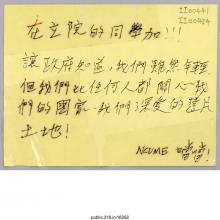 II00441
II00434
在立院的同學加!!!
讓政府知道,我們雖然年輕
但我們比任何人都關心我
們的國家、我們深愛的這片
土地!
NCUME 噹噹!
public.318.io/16292